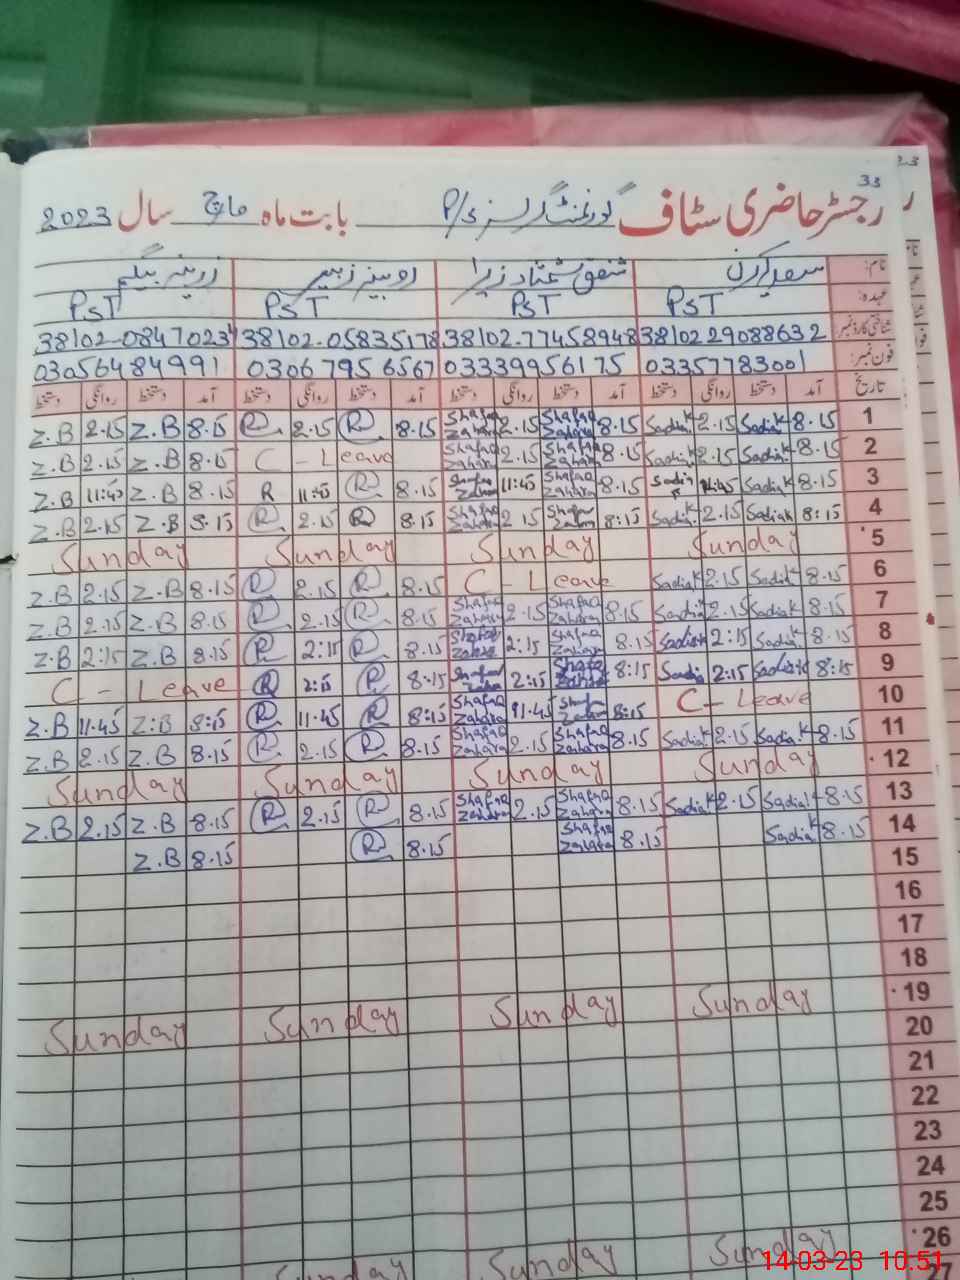 33
رجسٹر حاضری سٹاف گورنمنٹ گرلز P/S بابت ماہ مارچ سال 2023
نام: شفق شہناد زہرا روبینہ زبیر زرینہ بیگم
عہدہ: PST PST PST PST
شناختی کارڈ نمبر: 3810229088632 38102-77458948 38102-05835178 38102-0847023
فون نمبر: 03357783001 03339956175 03067956567 03056484991
تاریخ آمد دستخط روانگی دستخط آمد دستخط روانگی دستخط آمد دستخط روانگی دستخط آمد دستخط روانگی دستخط
Z.B 2.15 Z.B 8.15 R 2.15 R 8.15 Shafaq Zahara 2.15 Shafaq Zahara 8.15 Sadia K 2.15 Sadia K 8.15 1
Z.B 2.15 Z.B 8.15 C - Leave Shafaq Zahara 2.15 Shafaq Zahara 8.15 Sadia K 2.15 Sadia K 8.15 2
Z.B 11:45 Z.B 8.15 R 11:45 R 8.15 Shafaq Zahara 11:45 Shafaq Zahara 8.15 Sadia K 11:45 Sadia K 8.15 3
Z.B 2.15 Z.B 8.15 R 2.15 R 8.15 Shafaq Zahara 2.15 Shafaq Zahara 8:15 Sadia K 2.15 Sadia K 8:15 4
Sunday Sunday Sunday Sunday 5
Z.B 2.15 Z.B 8.15 R 2.15 R 8.15 C - Leave Sadia K 2.15 Sadia K 8.15 6
Z.B 2.15 Z.B 8.15 R 2.15 R 8.15 Shafaq Zahara 2.15 Shafaq Zahara 8.15 Sadia K 2.15 Sadia K 8.15 7
Z.B 2:15 Z.B 8.15 R 2:15 R 8.15 Shafaq Zahara 2:15 Shafaq Zahara 8.15 Sadia K 2:15 Sadia K 8.15 8
C - Leave R 2:15 R 8.15 Shafaq Zahara 2:15 Shafaq Zahara 8:15 Sadia 2:15 Sadia K 8:15 9
Z.B 11.45 Z.B 8:15 R 11.45 R 8:15 Shafaq Zahara 11.45 Shafaq Zahara 8:15 C - Leave 10
Z.B 2.15 Z.B 8.15 R 2.15 R 8.15 Shafaq Zahara 2.15 Shafaq Zahara 8.15 Sadia K 2.15 Sadia K 8.15 11
Sunday Sunday Sunday Sunday 12
Z.B 2.15 Z.B 8.15 R 2.15 R 8.15 Shafaq Zahara 2.15 Shafaq Zahara 8.15 Sadia K 2.15 Sadia K 8.15 13
Z.B 8.15 R 8.15 Shafaq Zahara 8.15 Sadia K 8.15 14
15
16
17
18
Sunday Sunday Sunday Sunday 19
20
21
22
23
24
25
Sunday Sunday Sunday Sunday 26
27
14-03-23 10:51